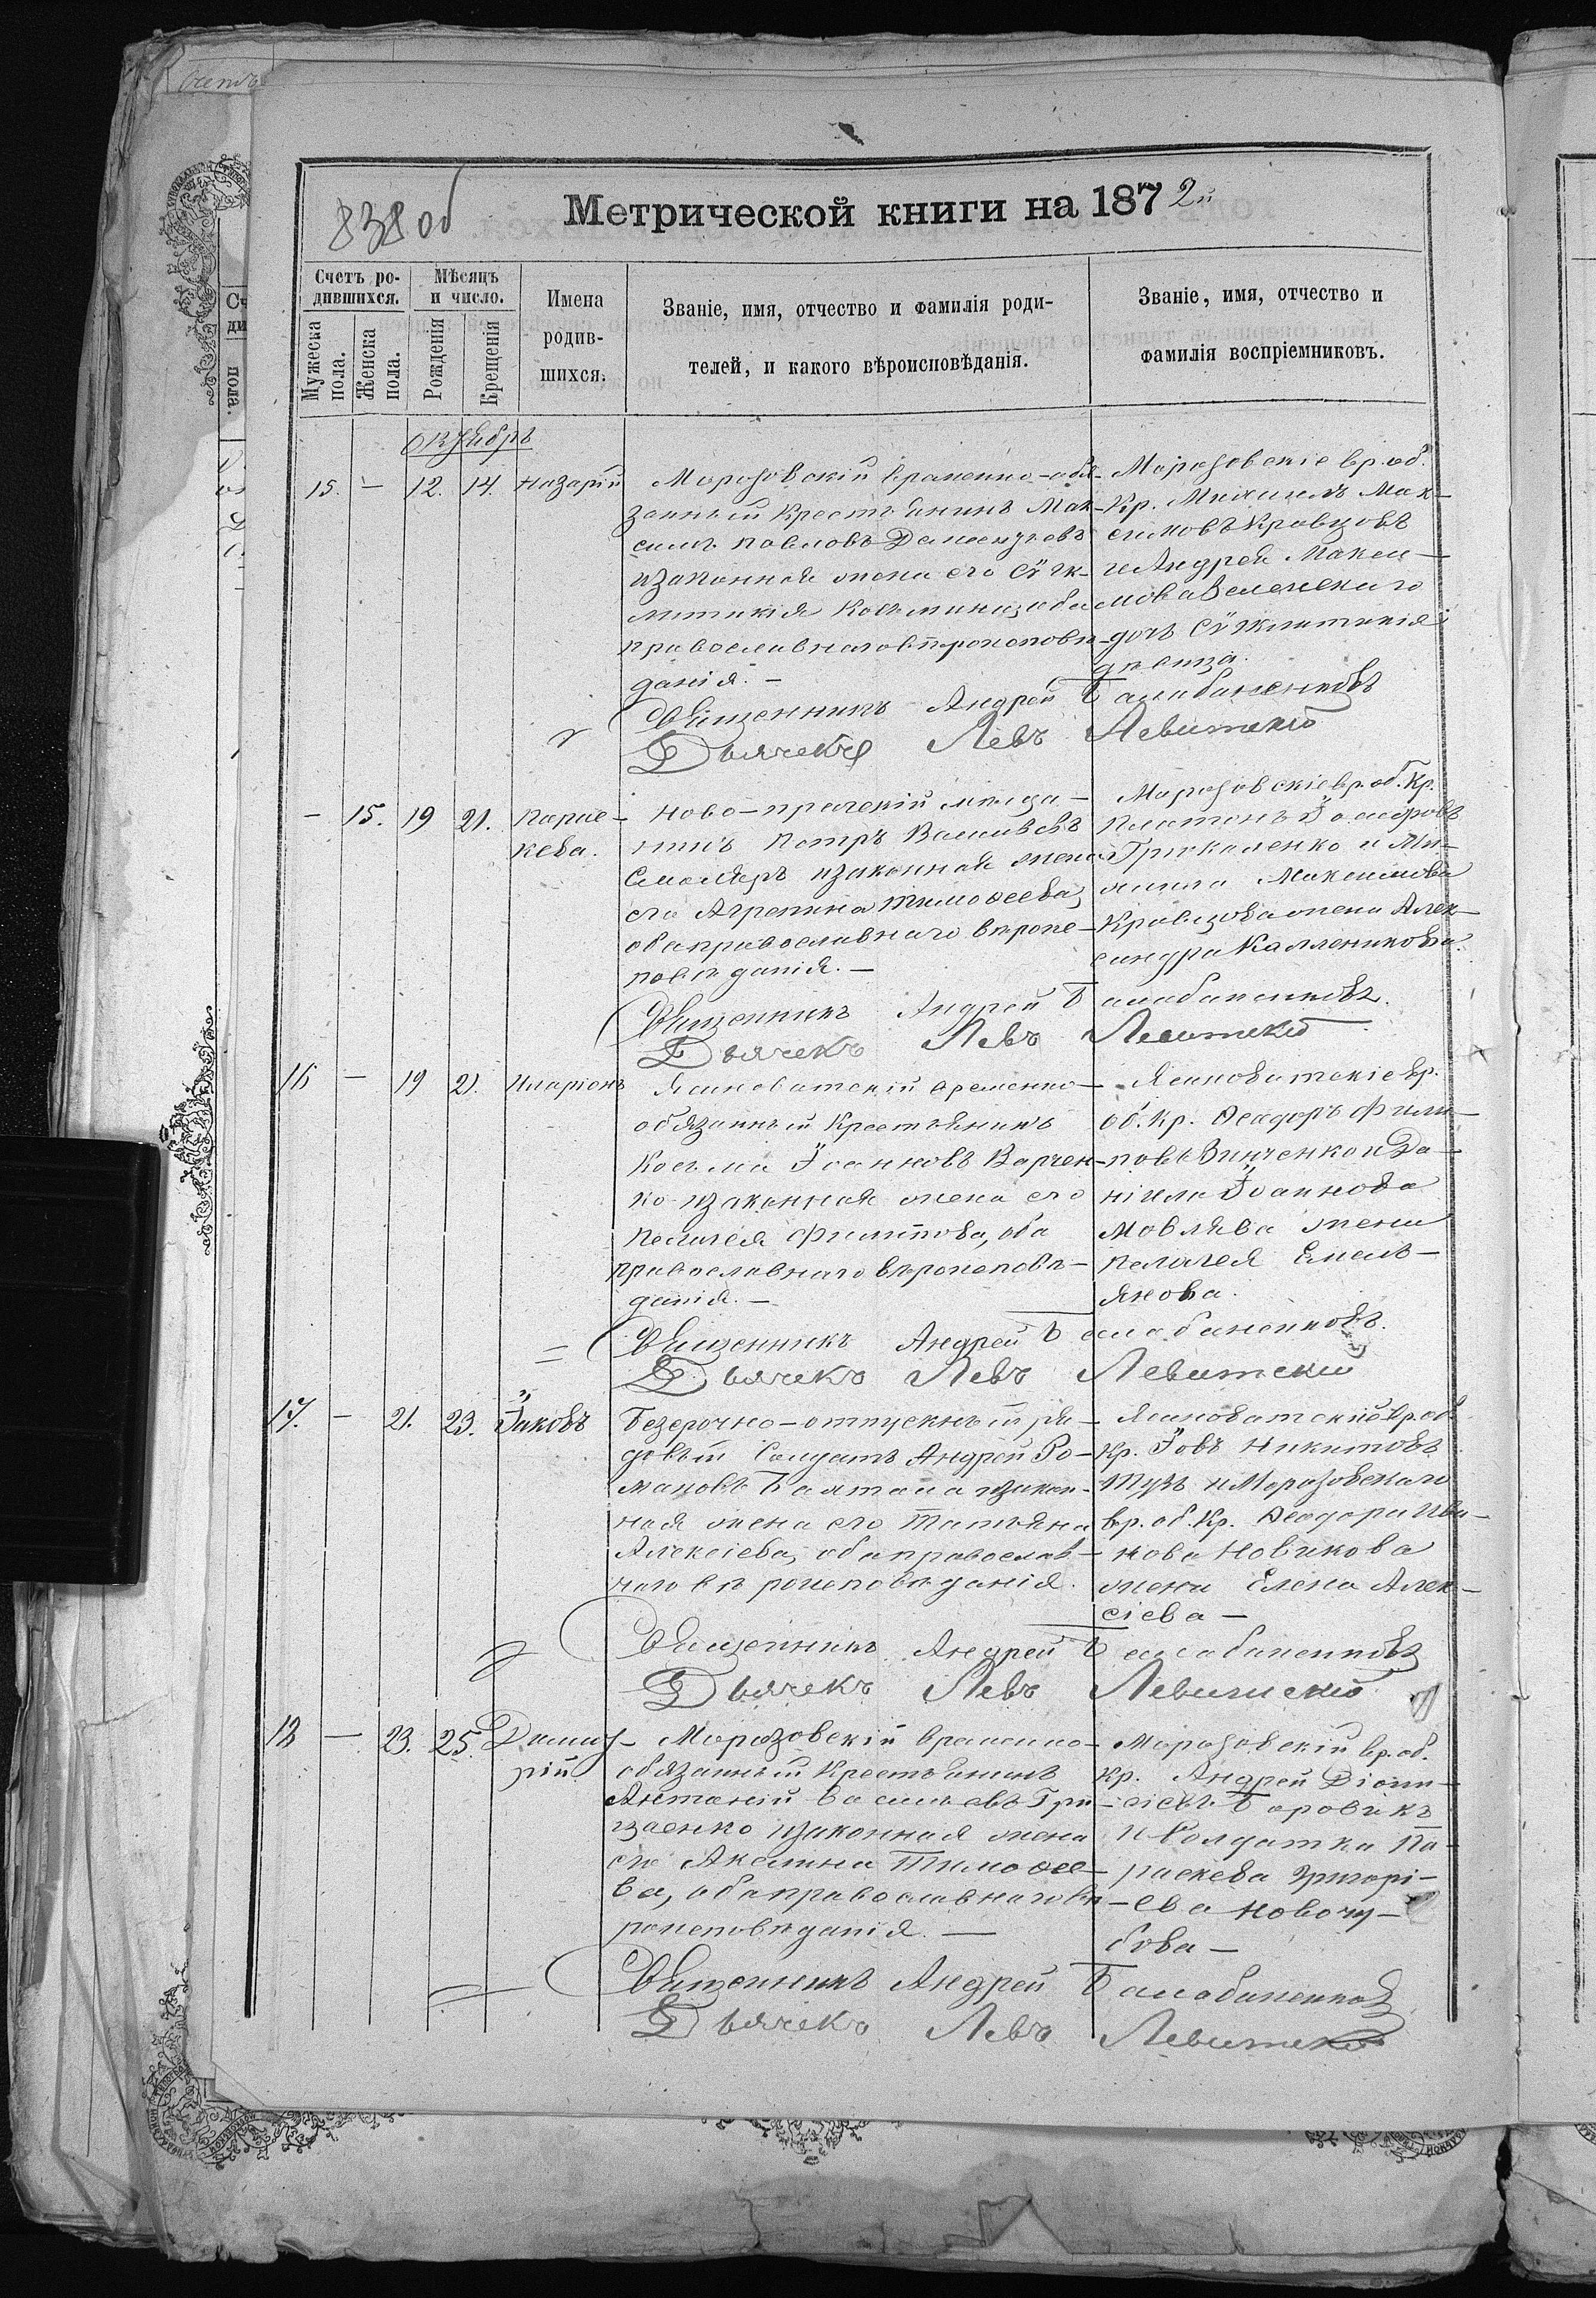 838 об
Метрической книги на 1872й
Счетъ ро-
дившихся.
Мужеска
пола.
Женска
пола.
Мѣсяцъ
и число.
Рожденія
Крещенія
Имена
родив-
шихся.
Званіе, имя, отчество и фамилія роди-
телей, и какого вѣроисповѣданія.
Званіе, имя, отчество и
фамилія воспріемниковъ.
Октябрь
15. — 12. 14. Назарій
Морозовскій временно-обя-
занный крестьянинъ Мак-
симъ Павловъ
и законная жена его Сүнк-
литикія Косьмина, оба
православнаго вѣроисповѣ-
данія. —
Морозовскіе вр. об.
кр. Михаилъ Мак-
симовъ Кравцовъ
и Андрея Макси-
мова
дочь Сүнклитикія
дѣвица.
Священникъ Андрей Балабаненковъ
Дьячекъ Левъ Левитскій
— 15. 19 21. Парас-
кева.
Ново-пражскій мѣща-
нинъ Петръ Васильевъ
Смоляръ и законная жена
его Агрепина Тимоѳеева,
оба православнаго вѣроис-
повѣданія. —
Морозовскіе вр. об. кр.
Платонъ Іосифовъ
Грикаленко и Ми-
хаила Максимова
Кравцова жена Алек-
сандра Каллиникова.
Священникъ Андрей Балабаненковъ.
Дьячекъ Левъ Левитскій
16 — 19 21. Иларіонъ
Ясиноватскій временно-
обязанный крестьянинъ
Косьма Іоанновъ Варчен-
ко и законная жена его
Пелагея Филиппова, оба
православнаго вѣроисповѣ-
данія. —
Ясиноватскіе вр.
об. кр. Ѳеодоръ Филип-
повъ Зинченко и Да-
ніила Іоаннова
Мовлява жена
Пелагея Емель-
янова.
Священникъ Андрей Балабаненковъ.
Дьячекъ Левъ Левитскій
17. — 21. 23. Іаковъ
Безсрочно-отпускный ря-
довый солдатъ Андрей Ро-
мановъ Балтага и закон-
ная жена его Татьяна
Алексіева, оба православ-
наго вѣроисповѣданія.
Ясиноватскій вр. об.
кр. Іовъ Никитовъ
Тузъ и Морозовскаго
вр. об. кр. Ѳеодора Ива-
нова Новикова
жена Елена Алек-
сіева —
Священникъ Андрей Балабаненковъ
Дьячекъ Левъ Левитскій
18 — 23. 25. Димит-
рій
Морозовскій временно-
обязанный крестьянинъ
Антоній Васильевъ Гри-
цаенко и законная жена
его Акелина Тимоѳее-
ва, оба православнаго вѣ-
роисповѣданія. —
Морозовскій вр. об.
кр. Андрей Діони-
сіевъ Боровикъ
и солдатка Па-
раскева Григорі-
ева
Священникъ Андрей Балабаненковъ
Дьячекъ Левъ Левитскій